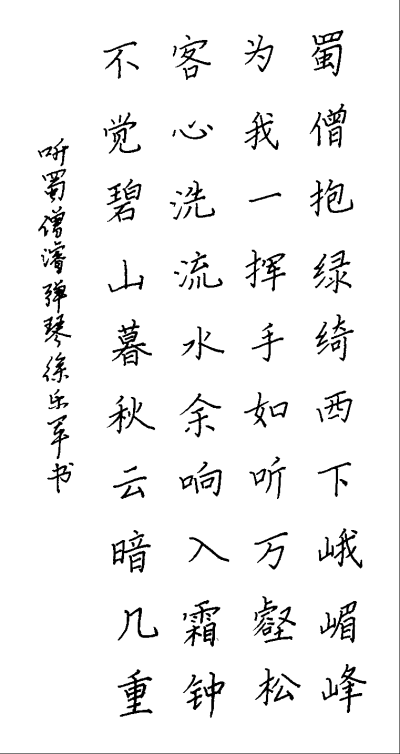 蜀僧抱绿绮西下峨嵋峰
为我一挥手如听万壑松
客心洗流水余响入霜钟
不觉碧山暮秋云暗几重
听蜀僧濬弹琴徐乐军书